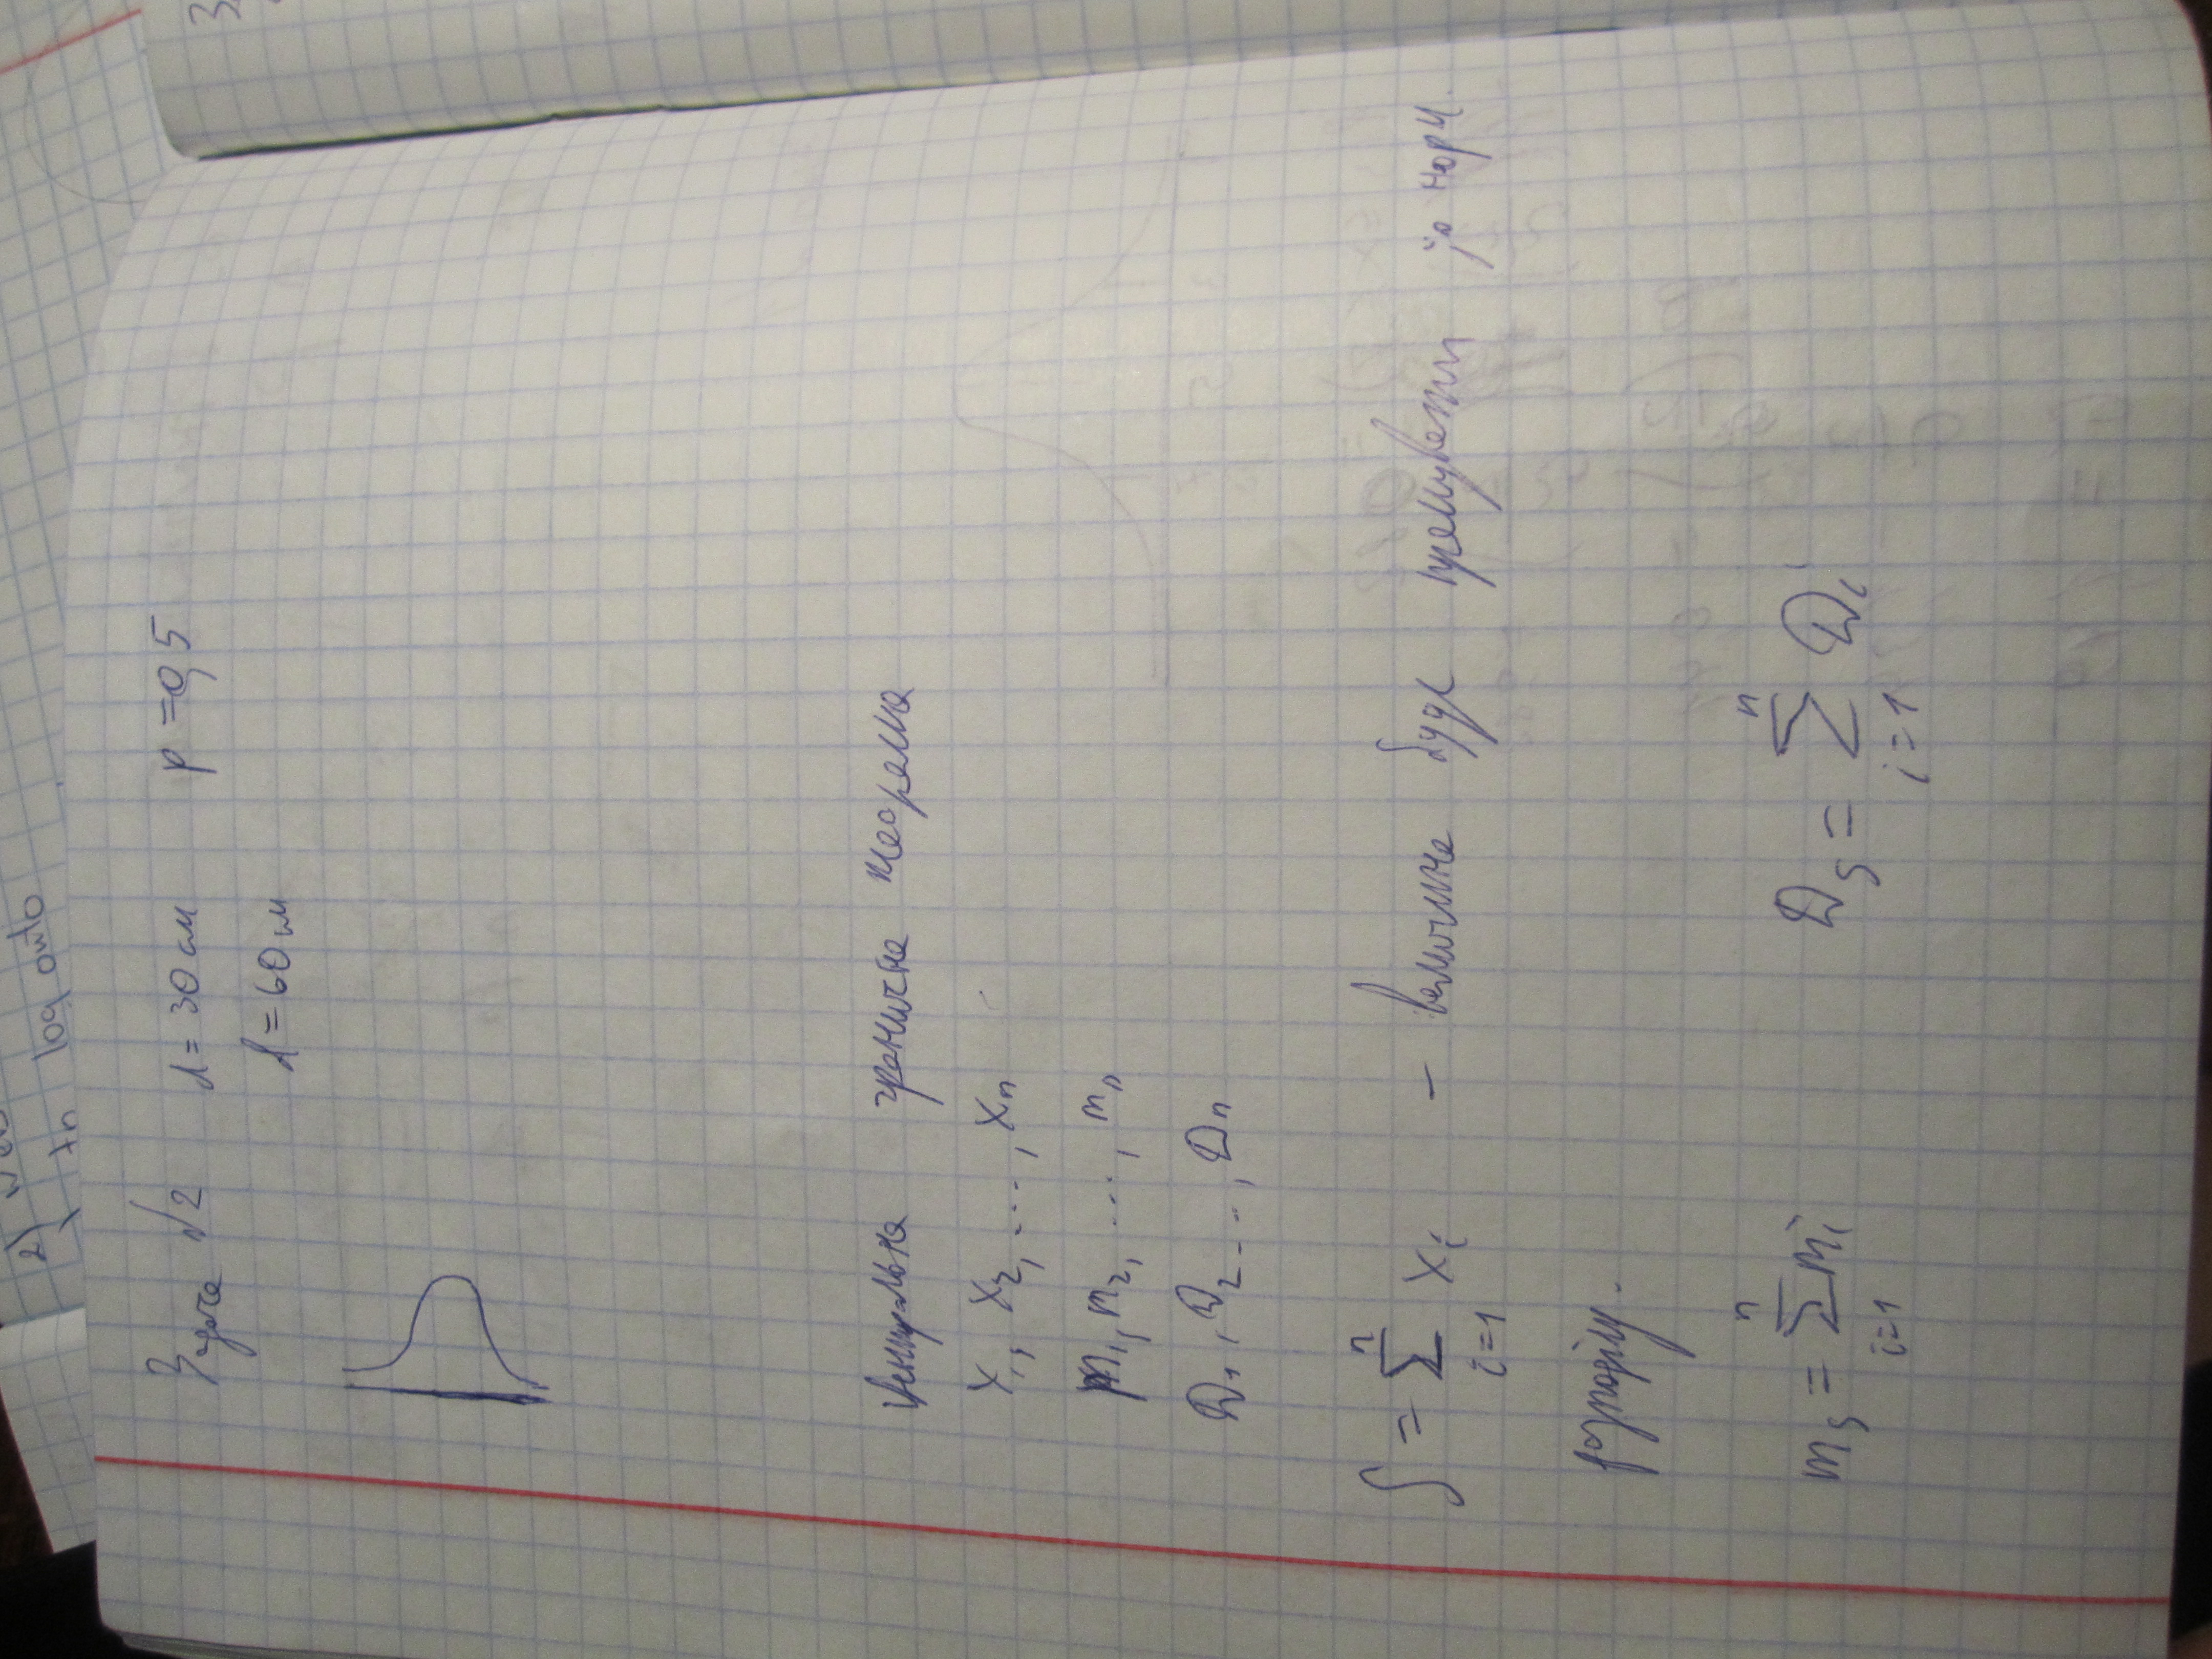 2)
tn log onto
Задача №2 d = 30 см p = 0,5
d = 60 см
Центральна гранична теорема
X₁, X₂, ..., Xₙ
m₁, m₂, ..., mₙ
D₁, D₂ ..., Dₙ
S = ∑ⁿᵢ₌₁ xᵢ – величина буде прямувати до норм.
розподілу.
mₛ = ∑ⁿᵢ₌₁ mᵢ Dₛ = ∑ⁿᵢ₌₁ Dᵢ